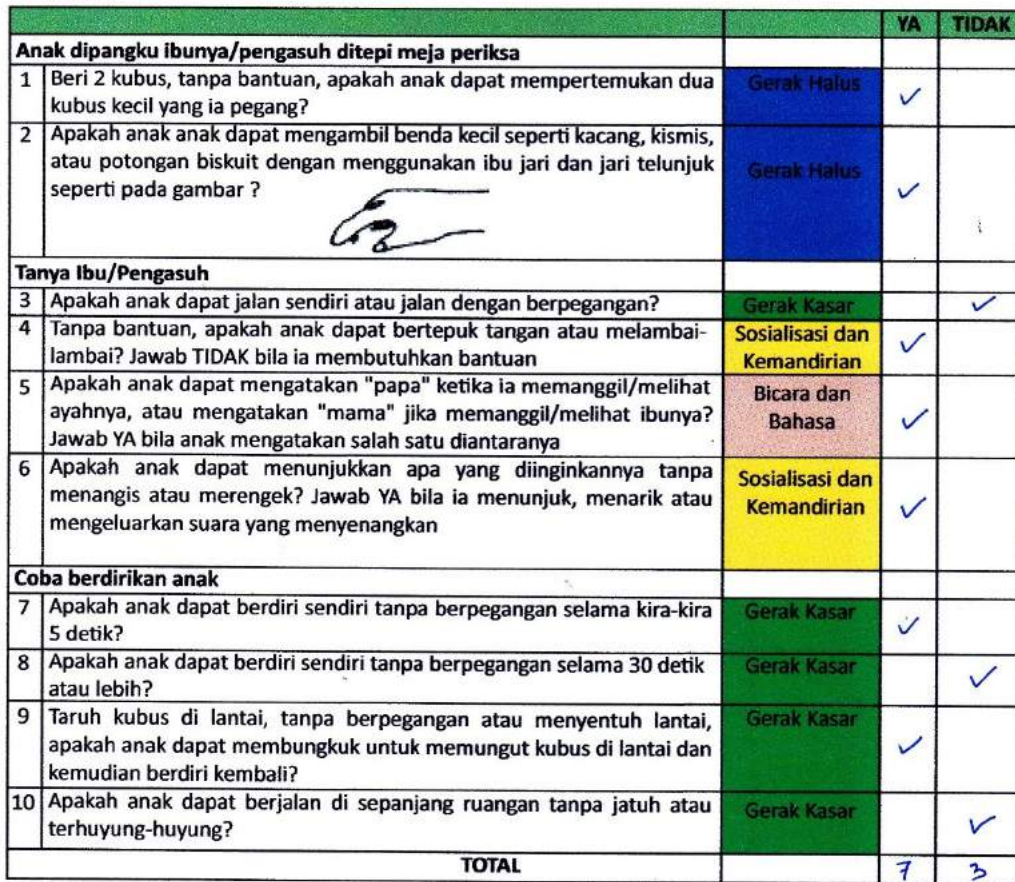 YA TIDAK
Anak dipangku ibunya/pengasuh ditepi meja periksa
1 Beri 2 kubus, tanpa bantuan, apakah anak dapat mempertemukan dua Gerak Halus ✓
kubus kecil yang ia pegang?
2 Apakah anak anak dapat mengambil benda kecil seperti kacang, kismis,
atau potongan biskuit dengan menggunakan ibu jari dan jari telunjuk Gerak Halus ✓
seperti pada gambar ?
Tanya Ibu/Pengasuh
3 Apakah anak dapat jalan sendiri atau jalan dengan berpegangan? Gerak Kasar ✓
4 Tanpa bantuan, apakah anak dapat bertepuk tangan atau melambai- Sosialisasi dan ✓
lambai? Jawab TIDAK bila ia membutuhkan bantuan Kemandirian
5 Apakah anak dapat mengatakan "papa" ketika ia memanggil/melihat Bicara dan
ayahnya, atau mengatakan "mama" jika memanggil/melihat ibunya? Bahasa ✓
Jawab YA bila anak mengatakan salah satu diantaranya
6 Apakah anak dapat menunjukkan apa yang diinginkannya tanpa Sosialisasi dan
menangis atau merengek? Jawab YA bila ia menunjuk, menarik atau Kemandirian ✓
mengeluarkan suara yang menyenangkan
Coba berdirikan anak
7 Apakah anak dapat berdiri sendiri tanpa berpegangan selama kira-kira Gerak Kasar ✓
5 detik?
8 Apakah anak dapat berdiri sendiri tanpa berpegangan selama 30 detik Gerak Kasar ✓
atau lebih?
9 Taruh kubus di lantai, tanpa berpegangan atau menyentuh lantai, Gerak Kasar
apakah anak dapat membungkuk untuk memungut kubus di lantai dan ✓
kemudian berdiri kembali?
10 Apakah anak dapat berjalan di sepanjang ruangan tanpa jatuh atau Gerak Kasar ✓
terhuyung-huyung?
TOTAL 7 3